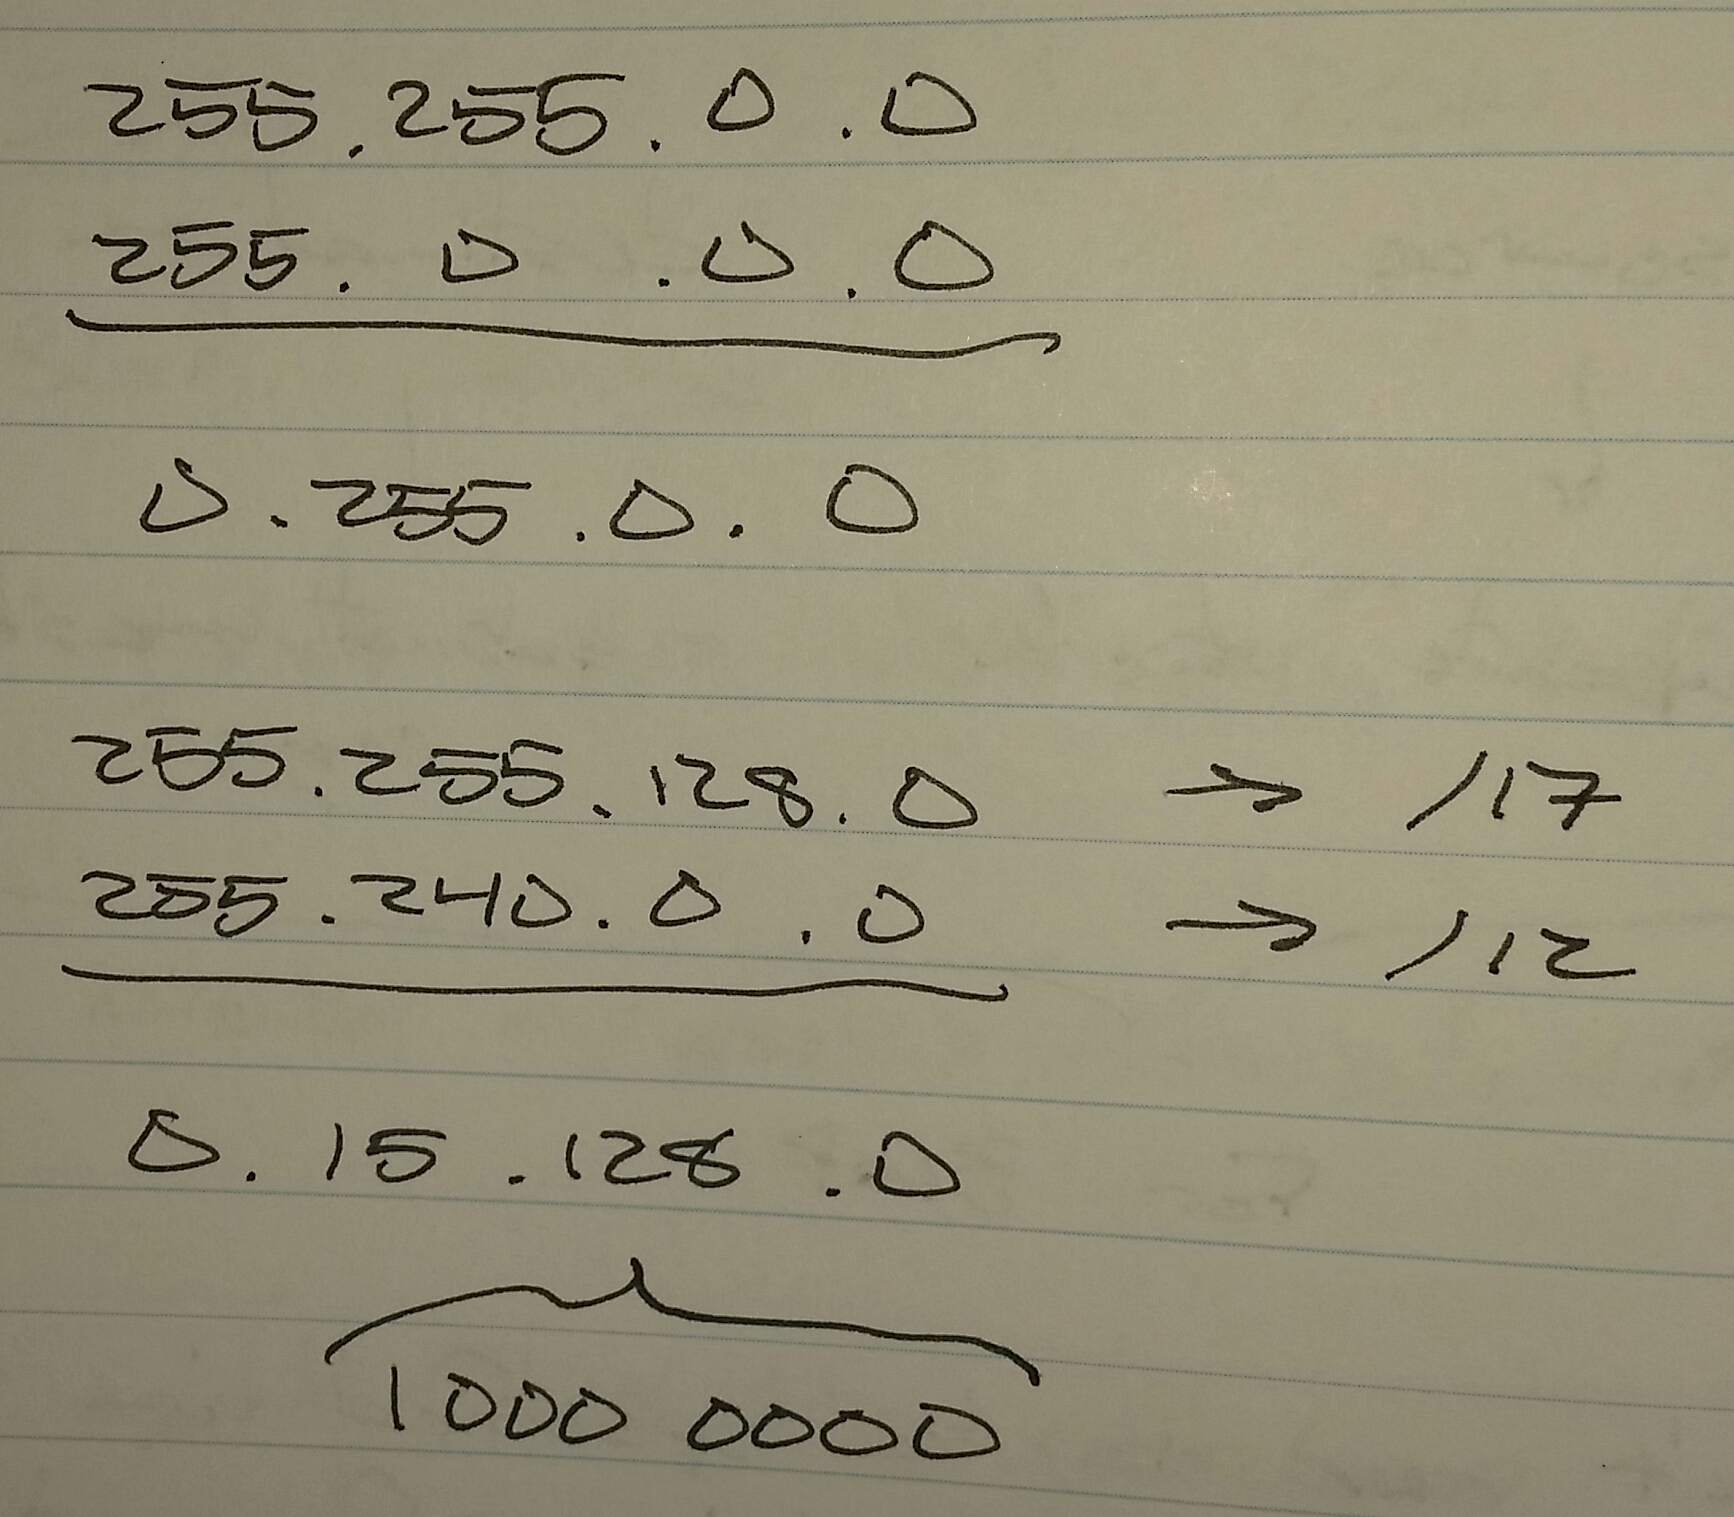 255.255.0.0
255.0.0.0
0.255.0.0
255.255.128.0 → /17
255.240.0.0 → /12
0.15.128.0
1000 0000